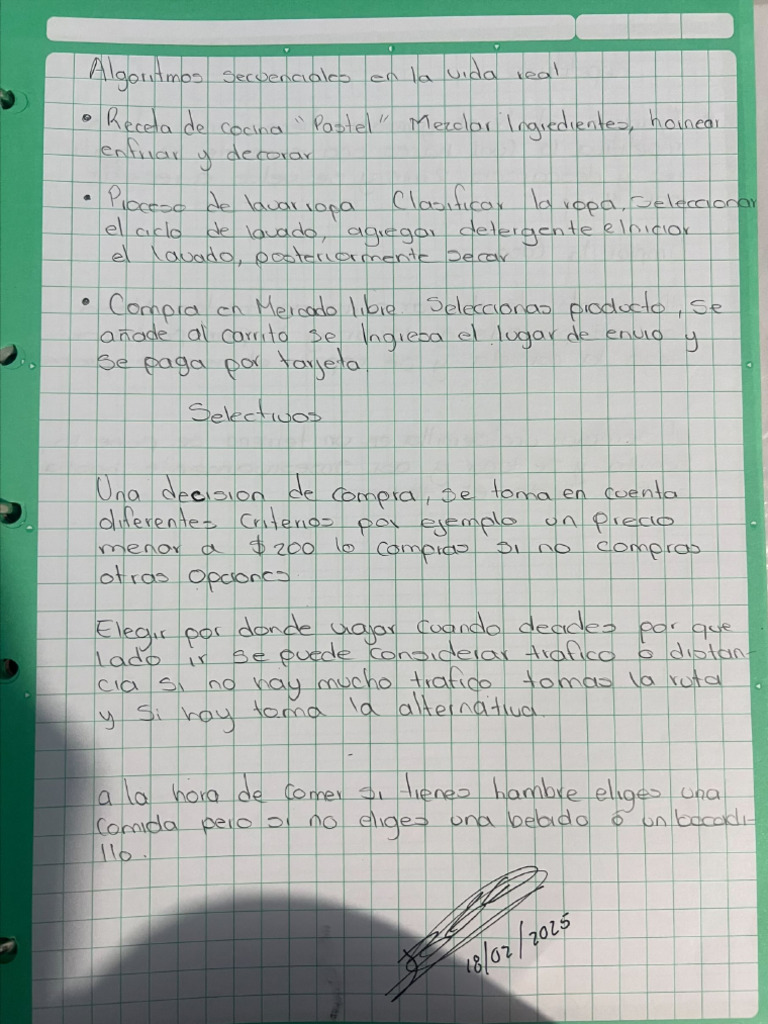 Algoritmos secuenciales en la vida real
• Receta de cocina "Pastel" Mezclar Ingredientes, hornear
enfriar y decorar
• Proceso de lavar ropa Clasificar la ropa, Seleccionar
el ciclo de lavado, agregar detergente e Iniciar
el lavado, posteriormente secar
• Compra en Mercado libre Seleccionas producto, se
añade al carrito se Ingresa el lugar de envio y
se paga por tarjeta.
Selectivos
Una decision de compra, se toma en cuenta
diferentes criterios por ejemplo un precio
menor a $200 lo compras si no compras
otras opciones
Elegir por donde viajar cuando decides por que
lado ir se puede considerar trafico o distan-
cia si no hay mucho trafico tomas la ruta
y si hay toma la alternativa.
a la hora de comer si tienes hambre eliges una
comida pero si no eliges una bebida o un bocadi-
llo.
18/02/2025